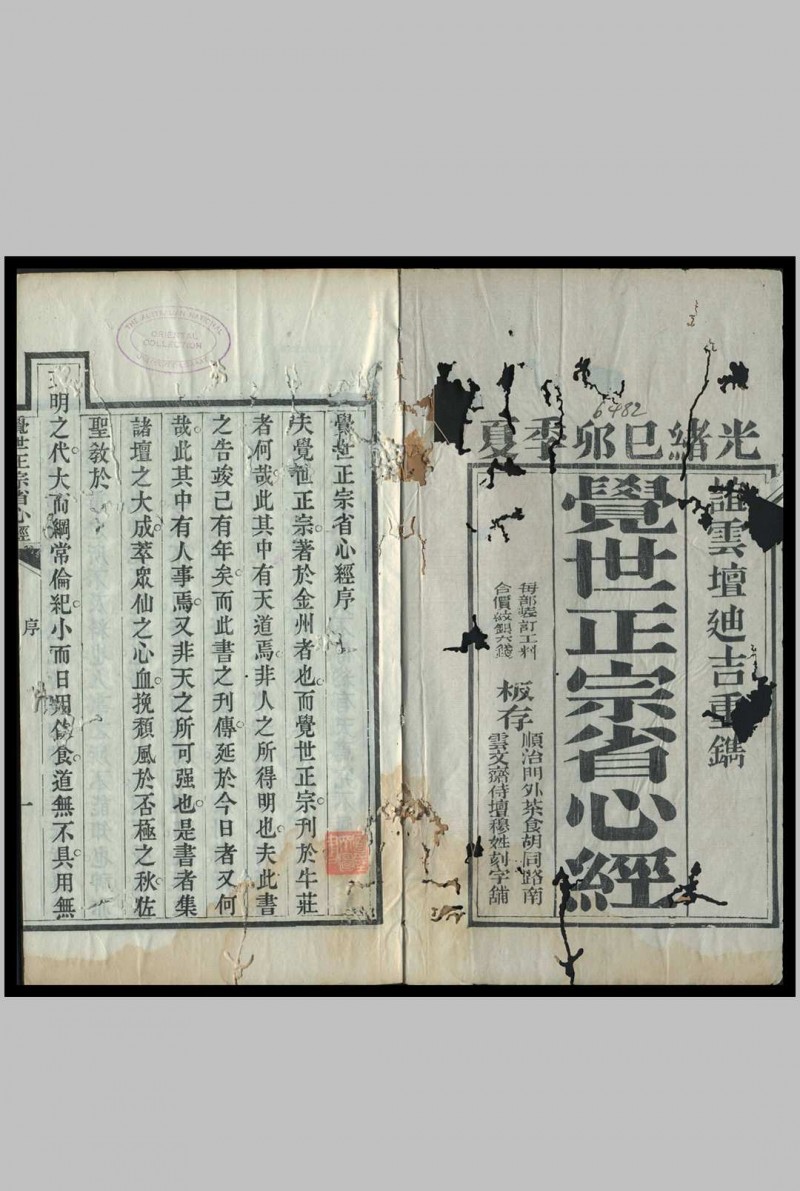 光緒已卯季夏
誼雲壇廸吉重鐫
覺世正宗省心經
每部裝訂工料
合價紋銀六錢
板存
順治門外茶食胡同路南
雲文齋侍壇穆姓刻字舖
6482
覺世正宗省心經序
夫覺世正宗著於金州者也而覺世正宗刊於牛莊
者何哉此其中有天道焉非人之所得明也夫此書
之告竣已有年矣而此書之刊傳延於今日者又何
哉此其中有人事焉又非天之所可强也是書者集
諸壇之大成萃眾仙之心血挽頹風於否極之秋佐
聖教於
明之代大而綱常倫紀小而日用飲食道無不具用無
覺世正宗省心經
序
一
THE AUSTRALIAN NATIONAL
ORIENTAL
COLLECTION
UNIVERSITY LIBRARY